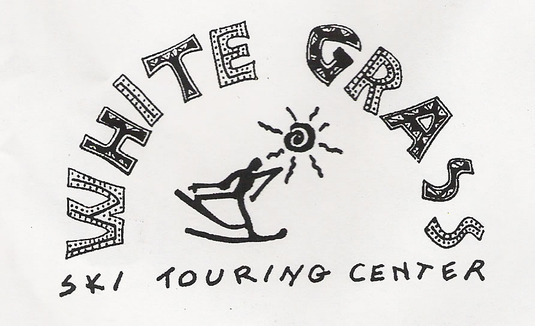 WHITE GRASS
SKI TOURING CENTER